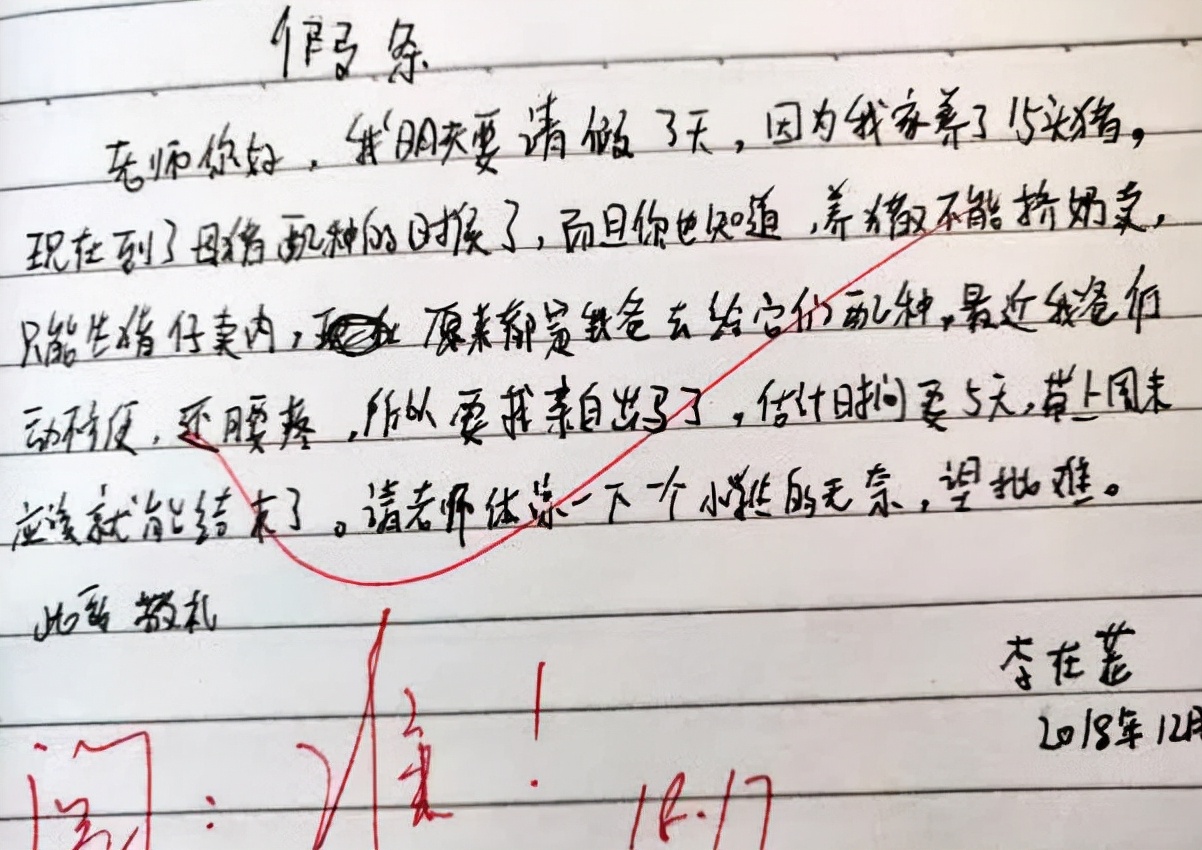 假条
老师你好，我明天要请假了天，因为我家养了15头猪，
现在到了母猪配种的时候了，而且你也知道，养猪又不能挤奶卖，
只能生猪仔卖肉，原来都是我爸去给它们配种，最近我爸行
动不便，还腰疼，所以要我亲自出马了，估计时间要5天，赶上周末
应该就能结束了。请老师体谅一下一个小学生的无奈，望批准。
此致 敬礼
李在
2018年12月
阅：准！
17